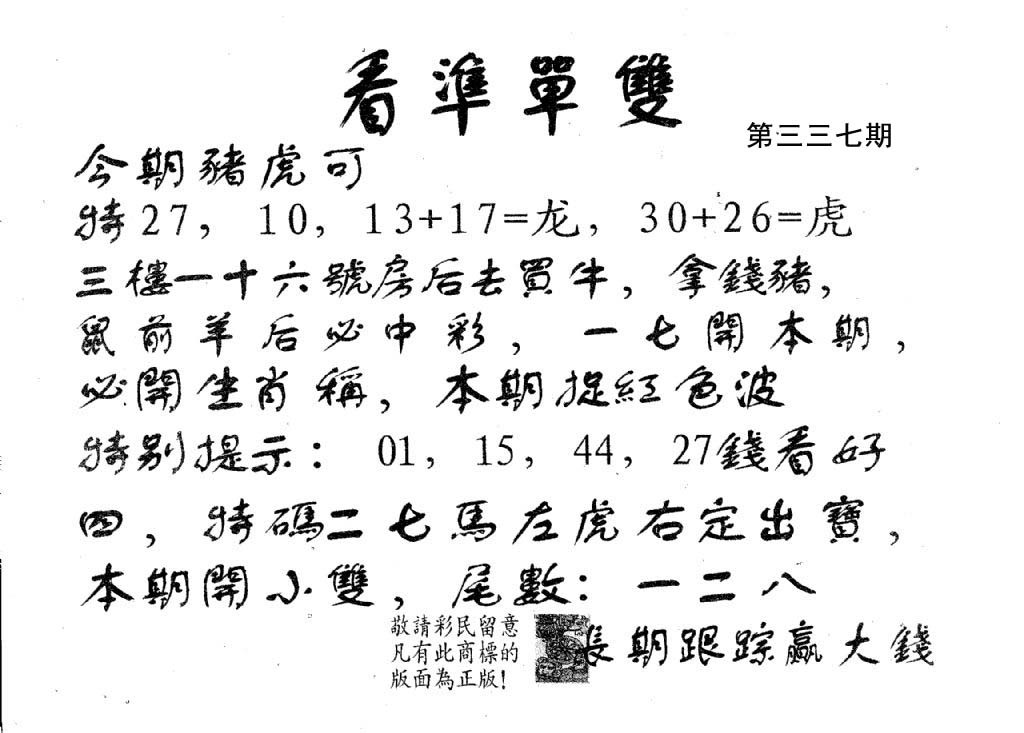 看準單雙
第三三七期
今期豬虎可
特27, 10, 13+17=龙, 30+26=虎
三樓一十六號房后去買牛,拿錢豬,
鼠前羊后必中彩,一七開本期,
必開生肖稱,本期捉紅色波
特别提示: 01, 15, 44, 27錢看好
四,特碼二七馬左虎右定出寶,
本期開小雙,尾數:一二八
敬請彩民留意
凡有此商標的
版面為正版!
長期跟踪赢大錢